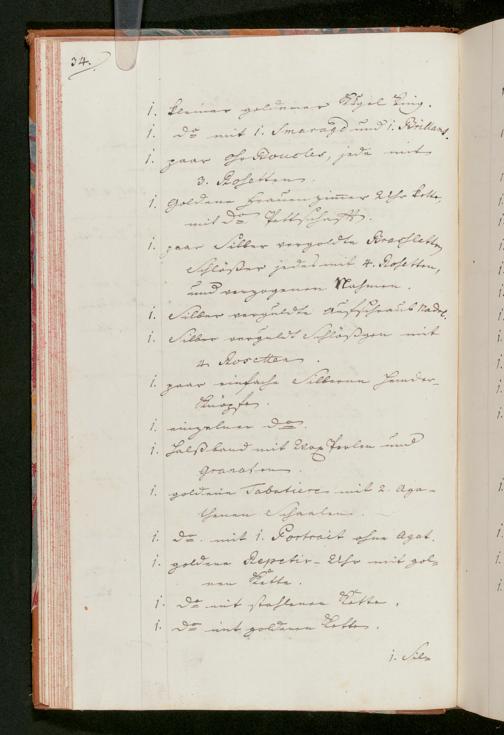 34.
1. kleiner goldener Kugel Ring.
1. do mit 1. Smaragd und 1. Brilliant.
1. paar Ohr Boucles, jede mit
3. Rosetten.
1. Goldene Frauenzimmer Uhr Kette,
mit do Pettschafft.
1. paar Silber vergoldte Braceletten
Schlößer jedes mit 4. Rosetten,
und verzogenen Nahmen.
1. Silber verguldte Aufschraub Nadel.
1. Silber verguldt Schlößgen mit
4. Rosetten.
1. paar einfache Silberne Hemder-
Knöpfe.
1. einzelner do.
1. Halßband mit Wax Perlen und
Granaten.
1. goldene Tabatiere mit 2. Aga-
thenen Schaalen.
1. do. mit 1. Portrait ohne Agat.
1. goldene Repetir-Uhr mit gol-
nen Kette.
1. do mit stahlener Kette.
1. do mit goldenen Kette.
1. Sil-